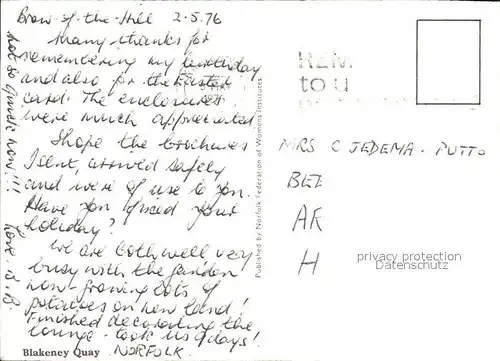 Brow-of-the-Hill 2.5.76
Many thanks for
remembering my birthday
and also for the Easter
card. The enclosures
were much appreciated
I hope the brochures
I sent, arrived safely
and were of use to you.
Have you fixed your
holiday?
We are both well, very
busy with the garden
now growing lots of
potatoes on new land!
Finished decorating the
lounge - took us 9 days!
not so quick now!!!
Love
Blakeney Quay NORFOLK.
Published by Norfolk Federation of Womens Institutes
REM
to u
MRS C JEDEMA - PUTTO
BEE
AK
H
privacy protection
Datenschutz